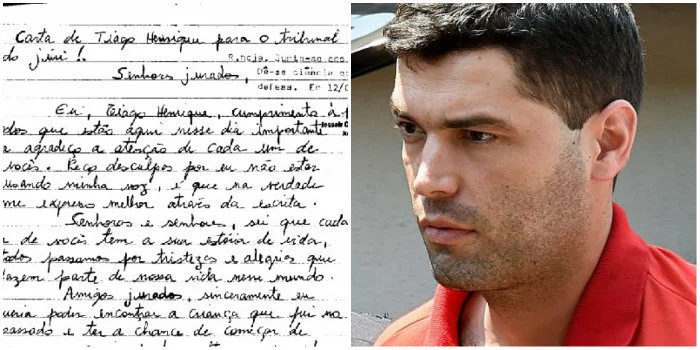 Carta de Tiago Henrique para o tribunal
do júri!.
R.hoje. Junte-se aos
Senhores jurados, Dê-se ciência ao
defesa. Em 12/0
Eu, Tiago Henrique, cumprimento à
dos que estão aqui nesse dia importante
e agradeço a atenção de cada um de
vocês. Peço desculpas por eu não estar
usando minha voz, é que na verdade
me expresso melhor através da escrita.
Senhoras e senhores, sei que cada
de vocês tem a sua estória de vida,
odos passamos por tristezas e alegrias que
fazem parte de nossa vida nesse mundo.
Amigos jurados, sinceramente eu
ueria poder encontrar a criança que fui no
passado e ter a chance de começar de